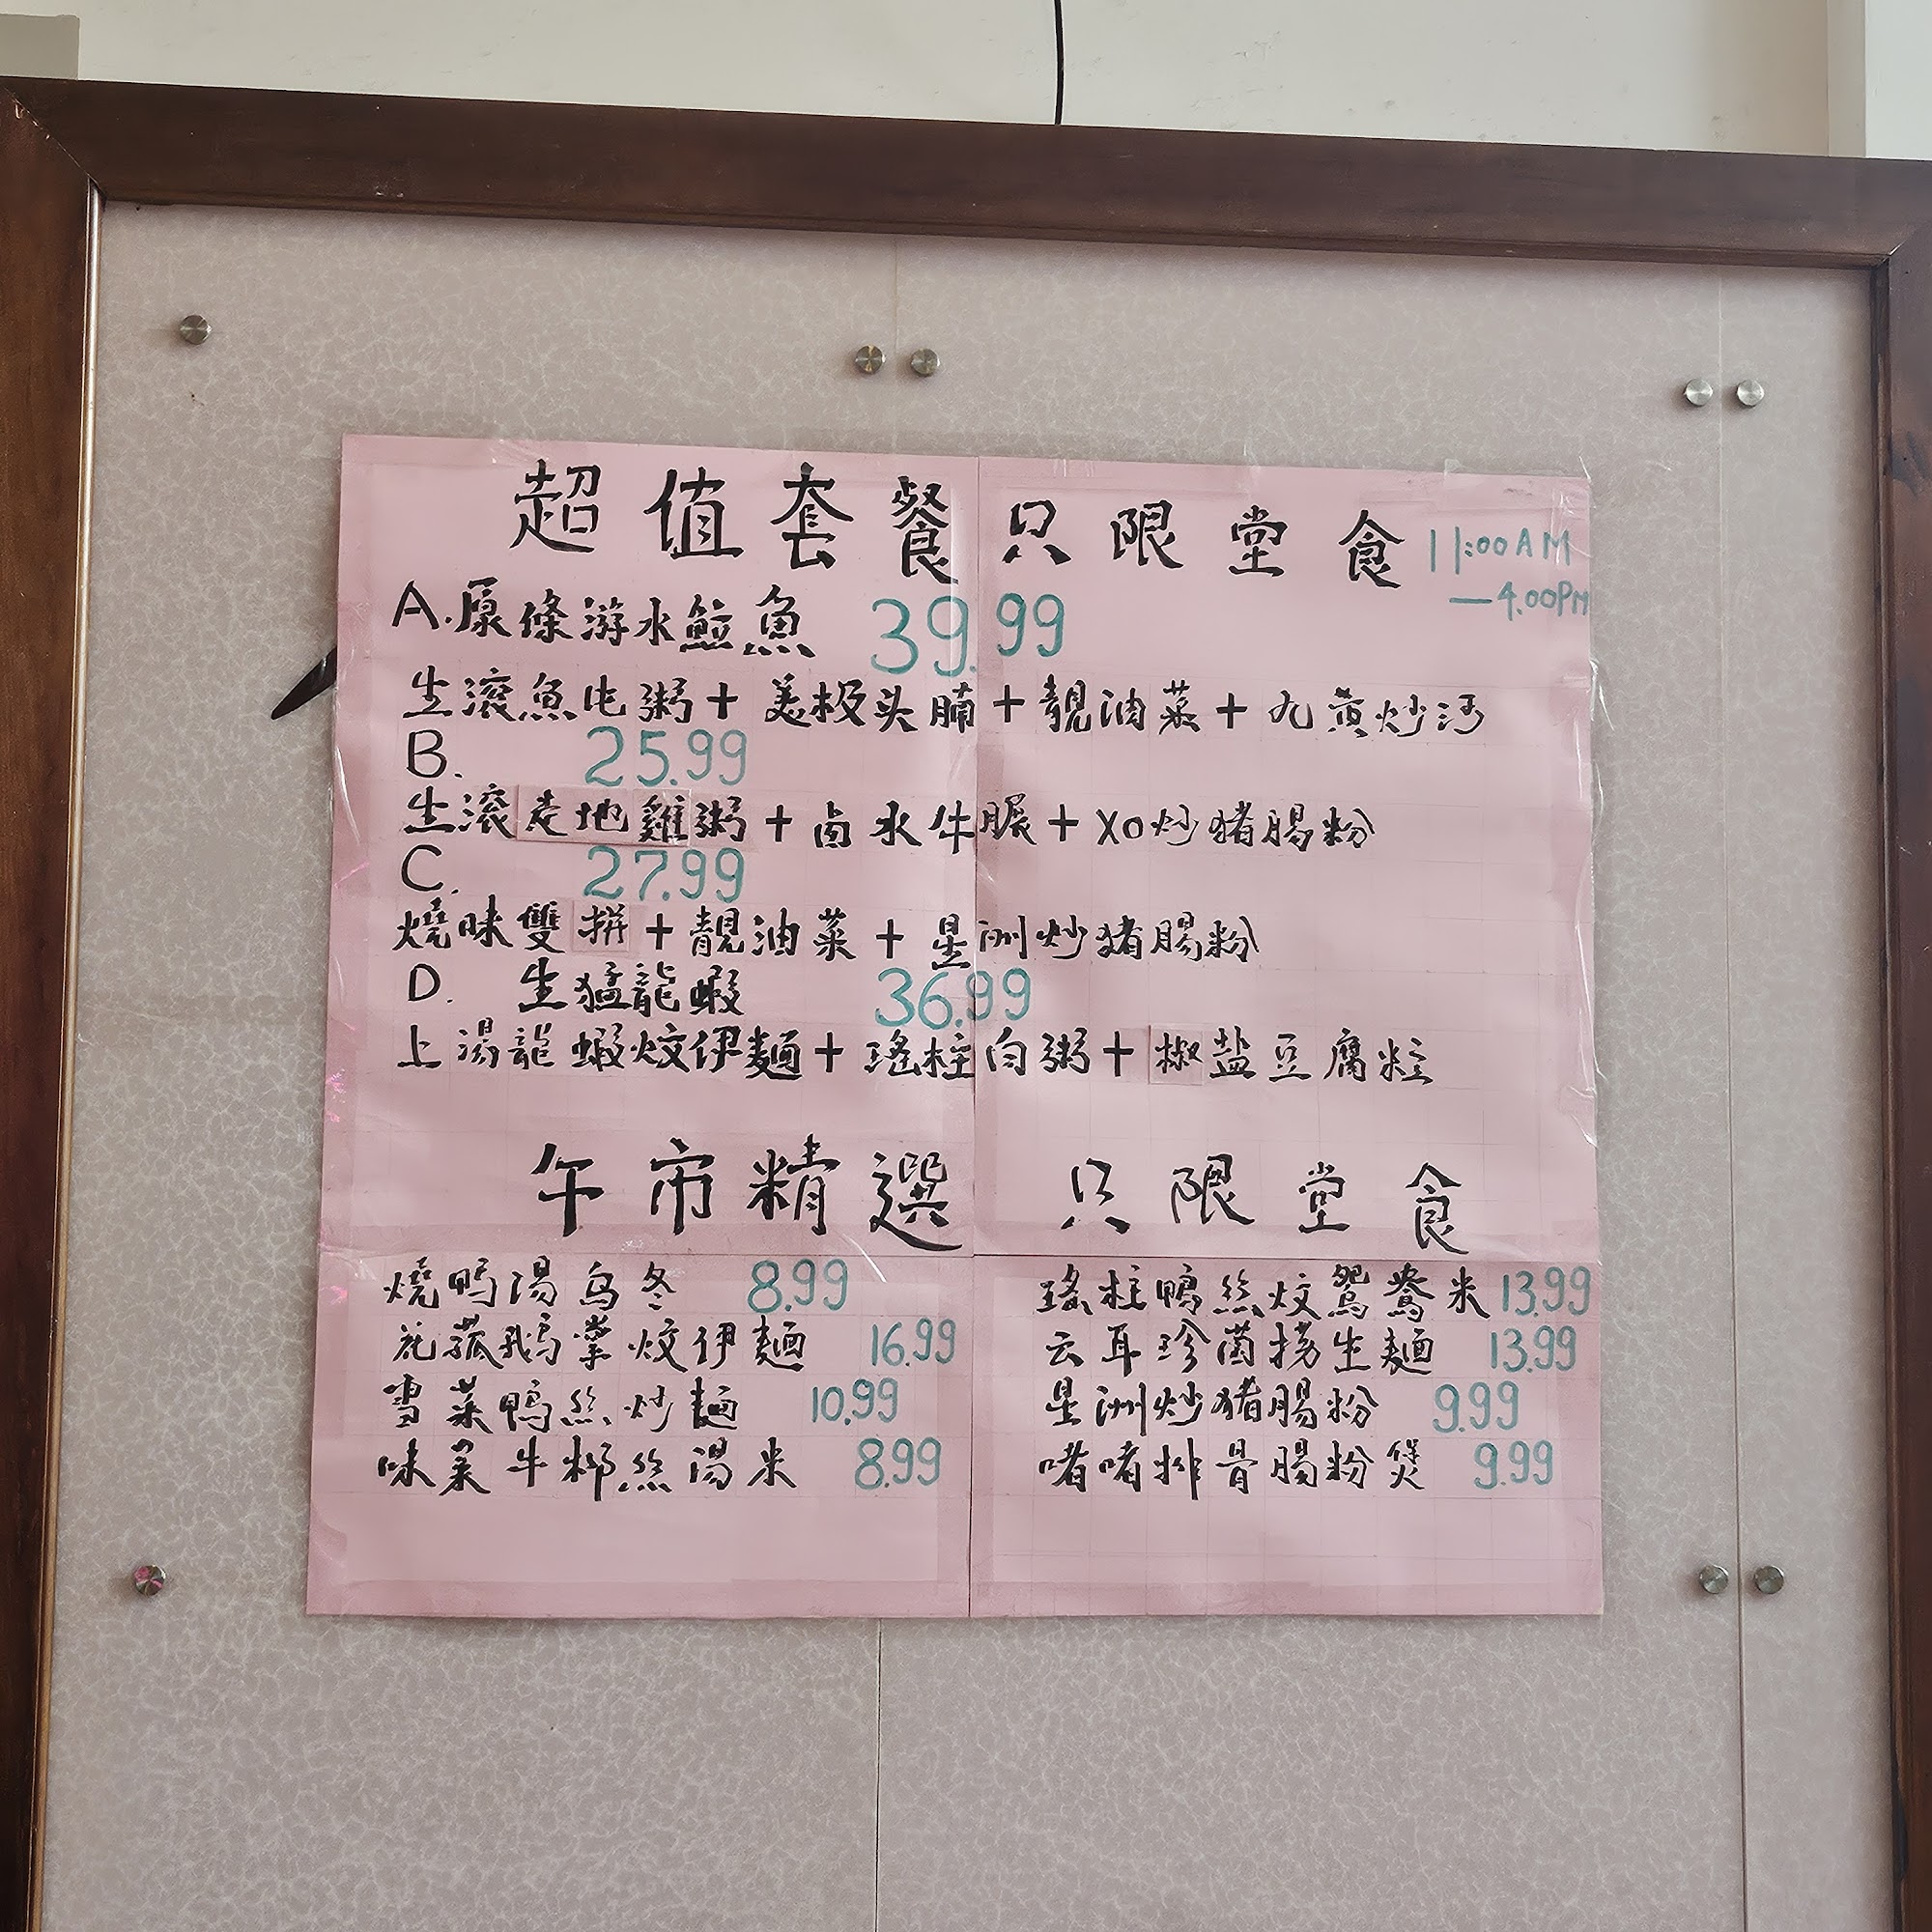 超值套餐只限堂食 11:00AM
—4.00PM
A.原條游水鯰魚 39.99
生滚魚屯粥+美极头腩+靚油菜+九黄炒河
B. 25.99
生滚走地雞粥+卤水牛腱+XO炒猪腸粉
C. 27.99
燒味雙拼+靚油菜+星洲炒猪腸粉
D. 生猛龍蝦 36.99
上湯龍蝦炆伊麵+瑤柱白粥+椒盐豆腐粒
午市精選 只限堂食
燒鸭湯烏冬 8.99
花菰鹅掌炆伊麵 16.99
雪菜鴨絲炒麵 10.99
味菜牛柳絲湯米 8.99
瑤柱鴨絲炆鴛鴦米 13.99
云耳珍菌捞生麵 13.99
星洲炒猪腸粉 9.99
啫啫排骨腸粉煲 9.99